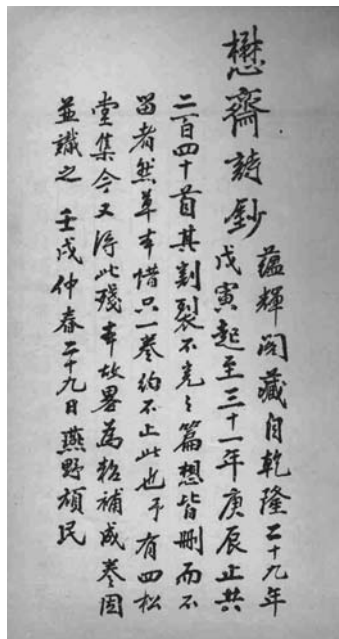 懋齋詩鈔 蕴輝閣藏自乾隆二十九年
戊寅起至三十一年庚辰止共
二百四十首其割裂不完之篇想皆刪而不
畱者然草本惜只一卷約不止此也予有四松
堂集今又得此殘本故畧為粘補成卷因
並識之 壬戌仲春二十九日 燕野頑民